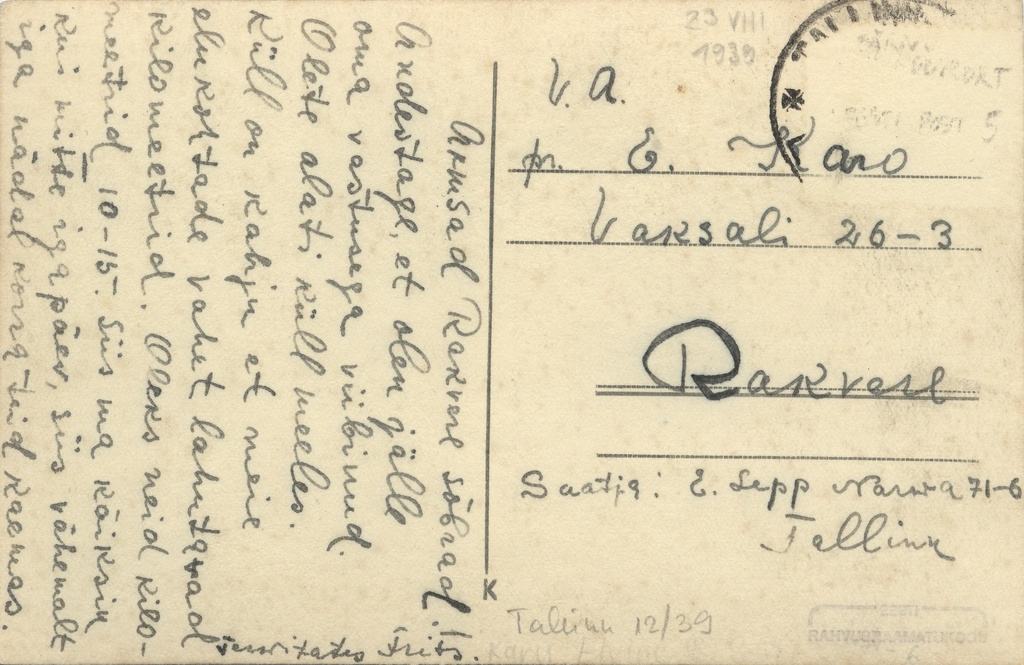 Armsad Rakvere sõbrad!
Andestage, et olen jälle
oma vastusega viibinud.
Olete alati küll meeles.
Küll on kahju et meie
elukohtade vahet lahutavad
kilomeetrid. Oleks neid kilo-
meetrid 10-15. siis ma käiksin
kui mitte igapäev, siis vähemalt
iga nädal korra teid kaemas.
Tervitades
23 VIII
1939
V. A.
pr. E. Karo
Vaksali 26-3
Rakvere
Saatja: E. Sepp Narva 71-6
Tallinn
Tallinn 12/39
EESTI
RAHVUSRAAMATUKOGU